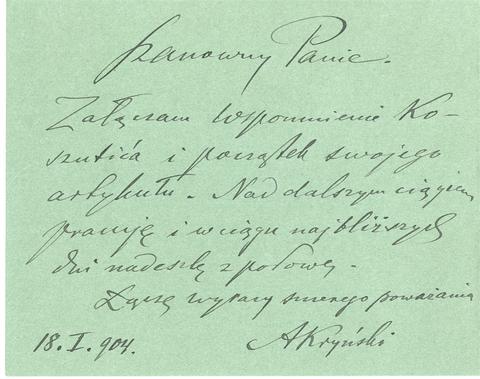 Szanowny Panie.
Załączam wspomnienie Ko-
szutića i początek swojego
artykułu. Nad dalszym ciągiem
pracuję i w ciągu najbliższych
dni nadeszlę z połowę.
Łączę wyrazy szczerego poważania
AKryński
18. I. 904.